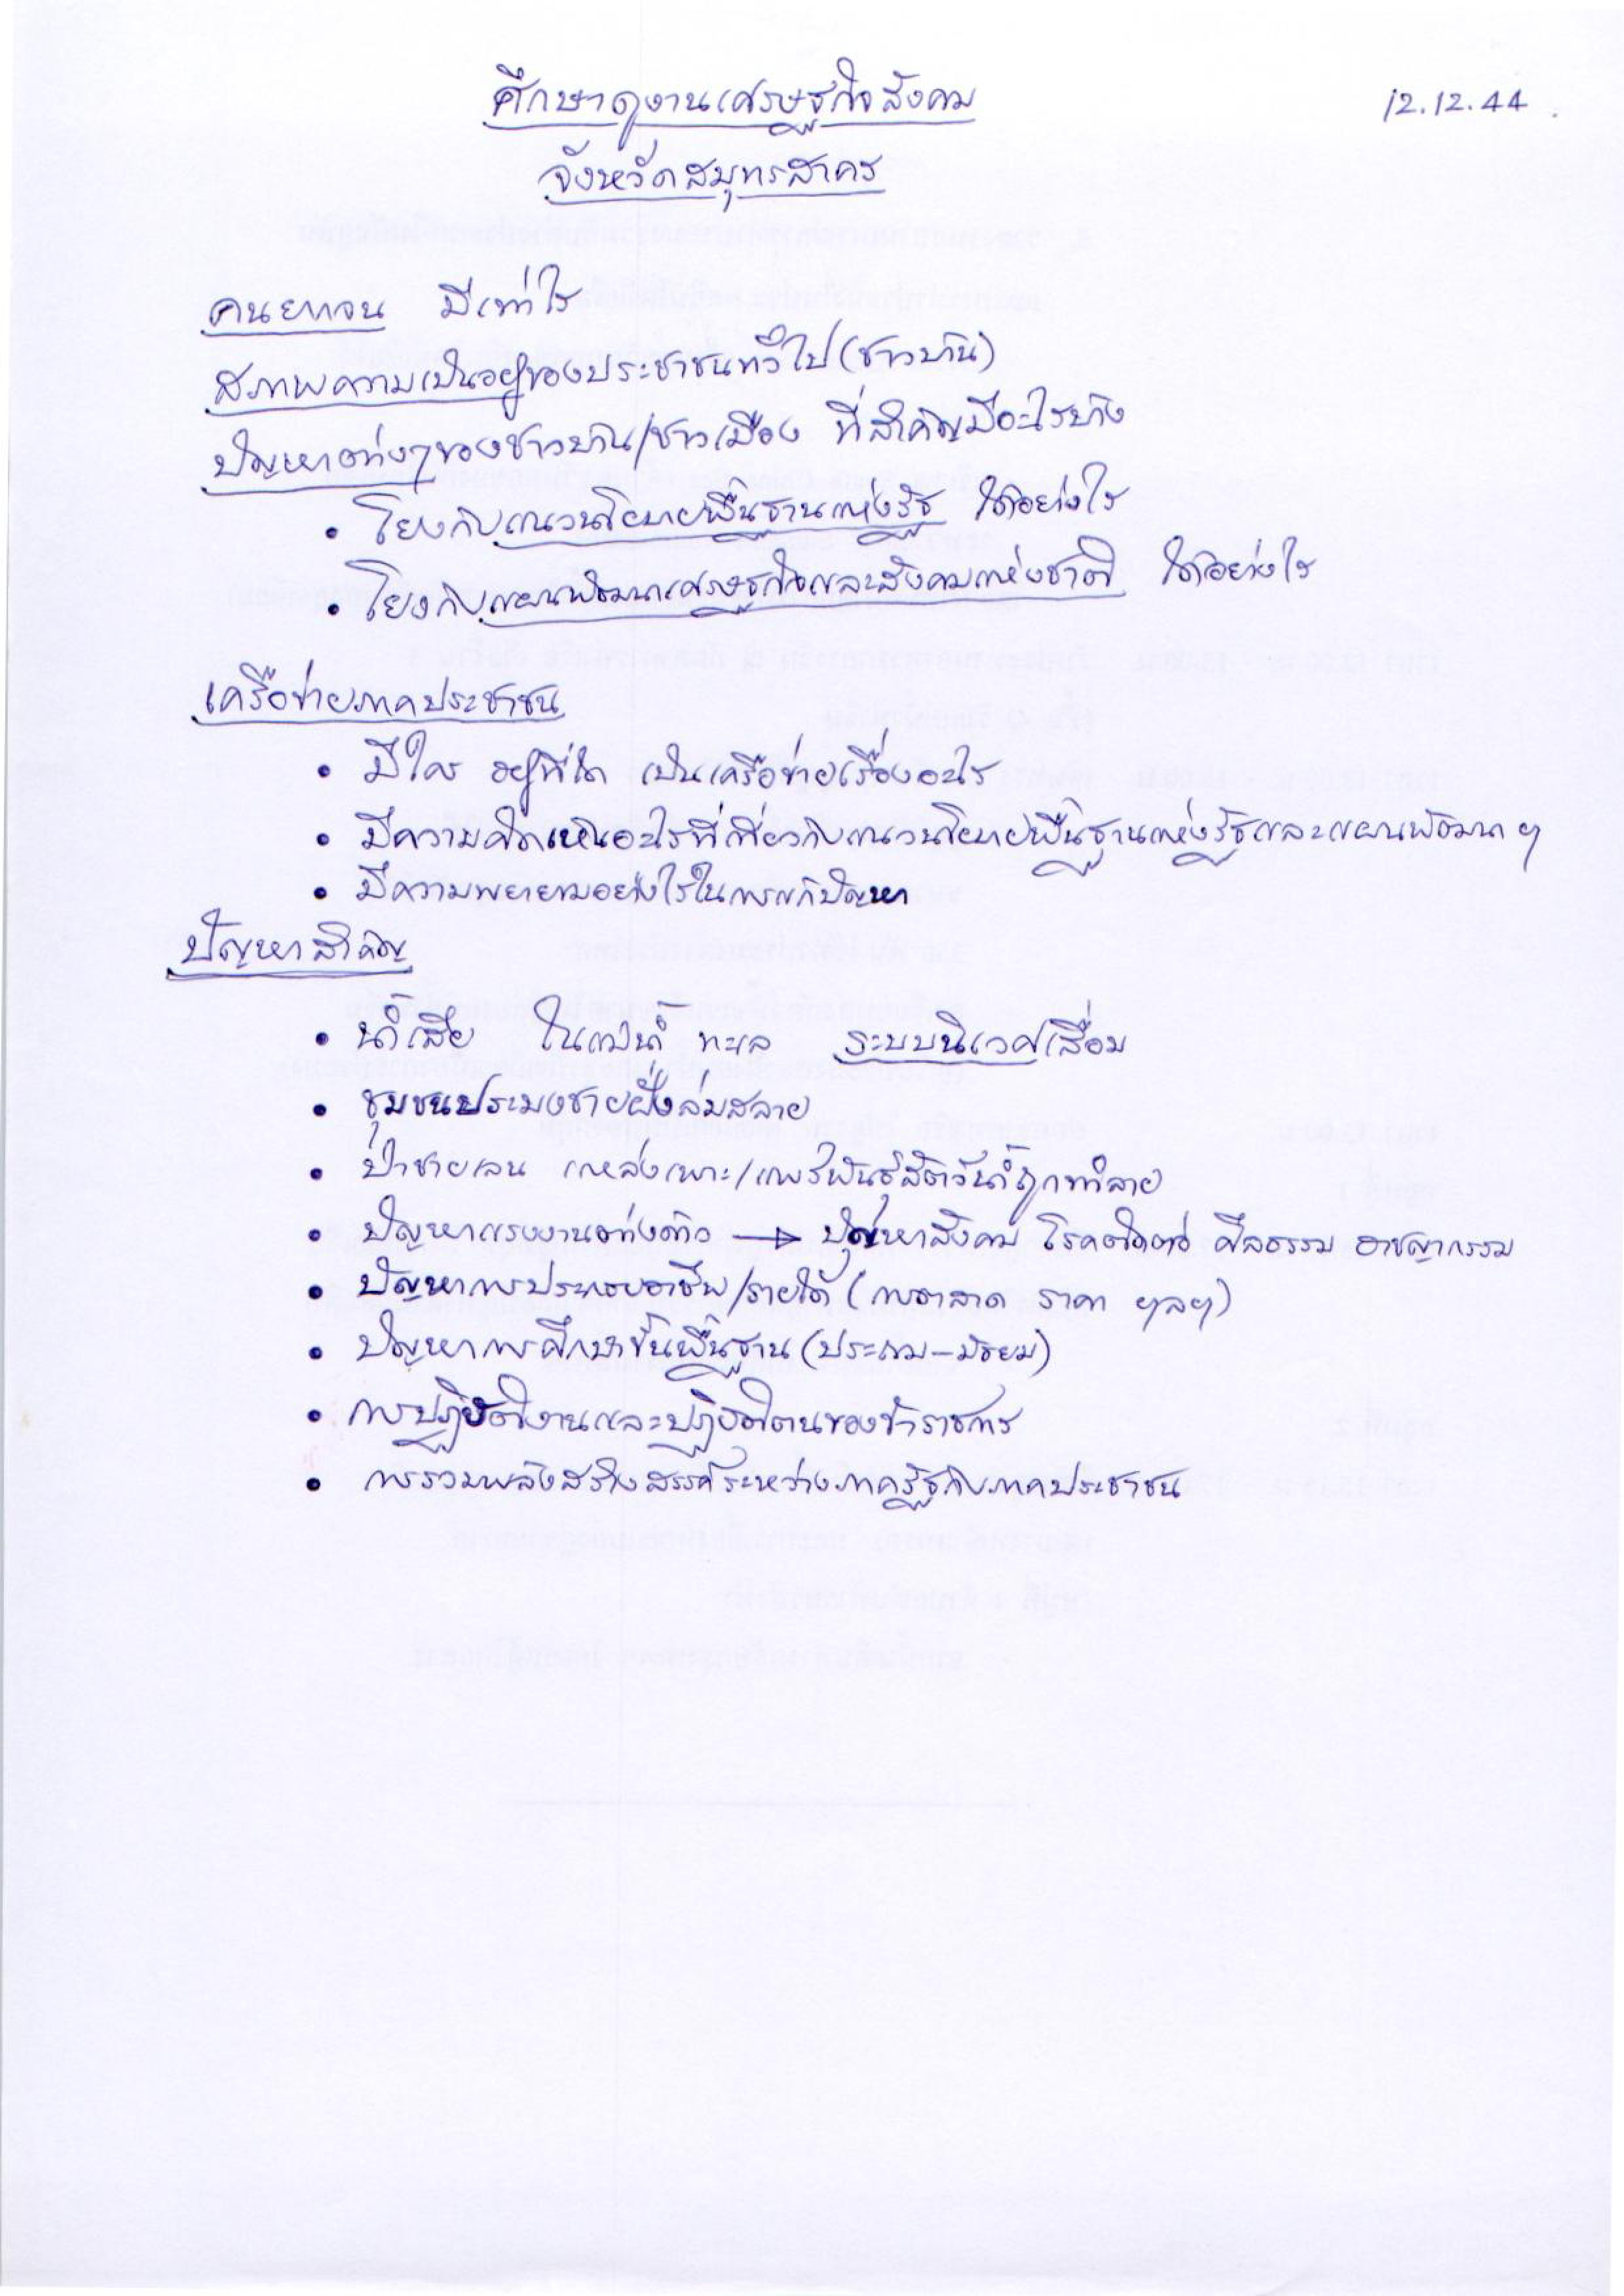 ศึกษาดูงานเศรษฐกิจสังคม
12.12.44
จังหวัดสมุทรสาคร
คนยากจน มีเท่าไร
สภาพความเป็นอยู่ของประชาชนทั่วไป (ชาวบ้าน)
ปัญหาต่างๆของชาวบ้าน/ชาวเมือง ที่สำคัญมีอะไรบ้าง
• โยงกับแนวนโยบายพื้นฐานแห่งรัฐ ได้อย่างไร
• โยงกับแผนพัฒนาเศรษฐกิจและสังคมแห่งชาติ ได้อย่างไร
เครือข่ายภาคประชาชน
• มีใคร อยู่ที่ใด เป็นเครือข่ายเรื่องอะไร
• มีความคิดเห็นอะไรที่เกี่ยวกับแนวนโยบายพื้นฐานแห่งรัฐและแผนพัฒนา ฯ
• มีความพยายามอย่างไรในการแก้ปัญหา
ปัญหาสำคัญ
• น้ำเสีย ในแม่น้ำ ทะเล ระบบนิเวศเสื่อม
• ชุมชนประมงชายฝั่งล่มสลาย
• ป่าชายเลน แหล่งเพาะ/แพร่พันธุ์สัตว์น้ำถูกทำลาย
• ปัญหาแรงงานต่างด้าว → ปัญหาสังคม โรคติดต่อ ศีลธรรม อาชญากรรม
• ปัญหาการประกอบอาชีพ/รายได้ (การตลาด ราคา ฯลฯ)
• ปัญหาการศึกษาขั้นพื้นฐาน (ประถม-มัธยม)
• การปฏิบัติงานและปฏิบัติตนของข้าราชการ
• การรวมพลังสร้างสรรค์ระหว่างภาครัฐกับภาคประชาชน